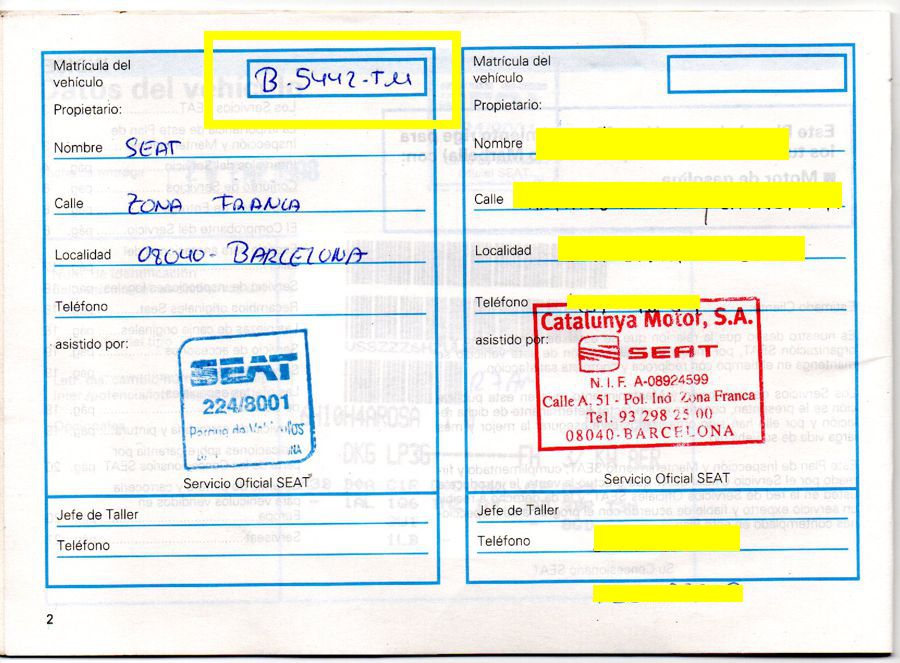 Matrícula del
vehículo
B-5442-TM
Propietario:
Nombre SEAT
Calle ZONA FRANCA
Localidad 08040-BARCELONA
Teléfono
asistido por:
SEAT
224/8001
Parque de Vehículos
Servicio Oficial SEAT
Jefe de Taller
Teléfono
2
Matrícula del
vehículo
Propietario:
Nombre
Calle
Localidad
Teléfono
asistido por:
Catalunya Motor, S.A.
SEAT
N.I.F. A-08924599
Calle A, 51 - Pol. Ind. Zona Franca
Tel. 93 298 25 00
08040-BARCELONA
Servicio Oficial SEAT
Jefe de Taller
Teléfono